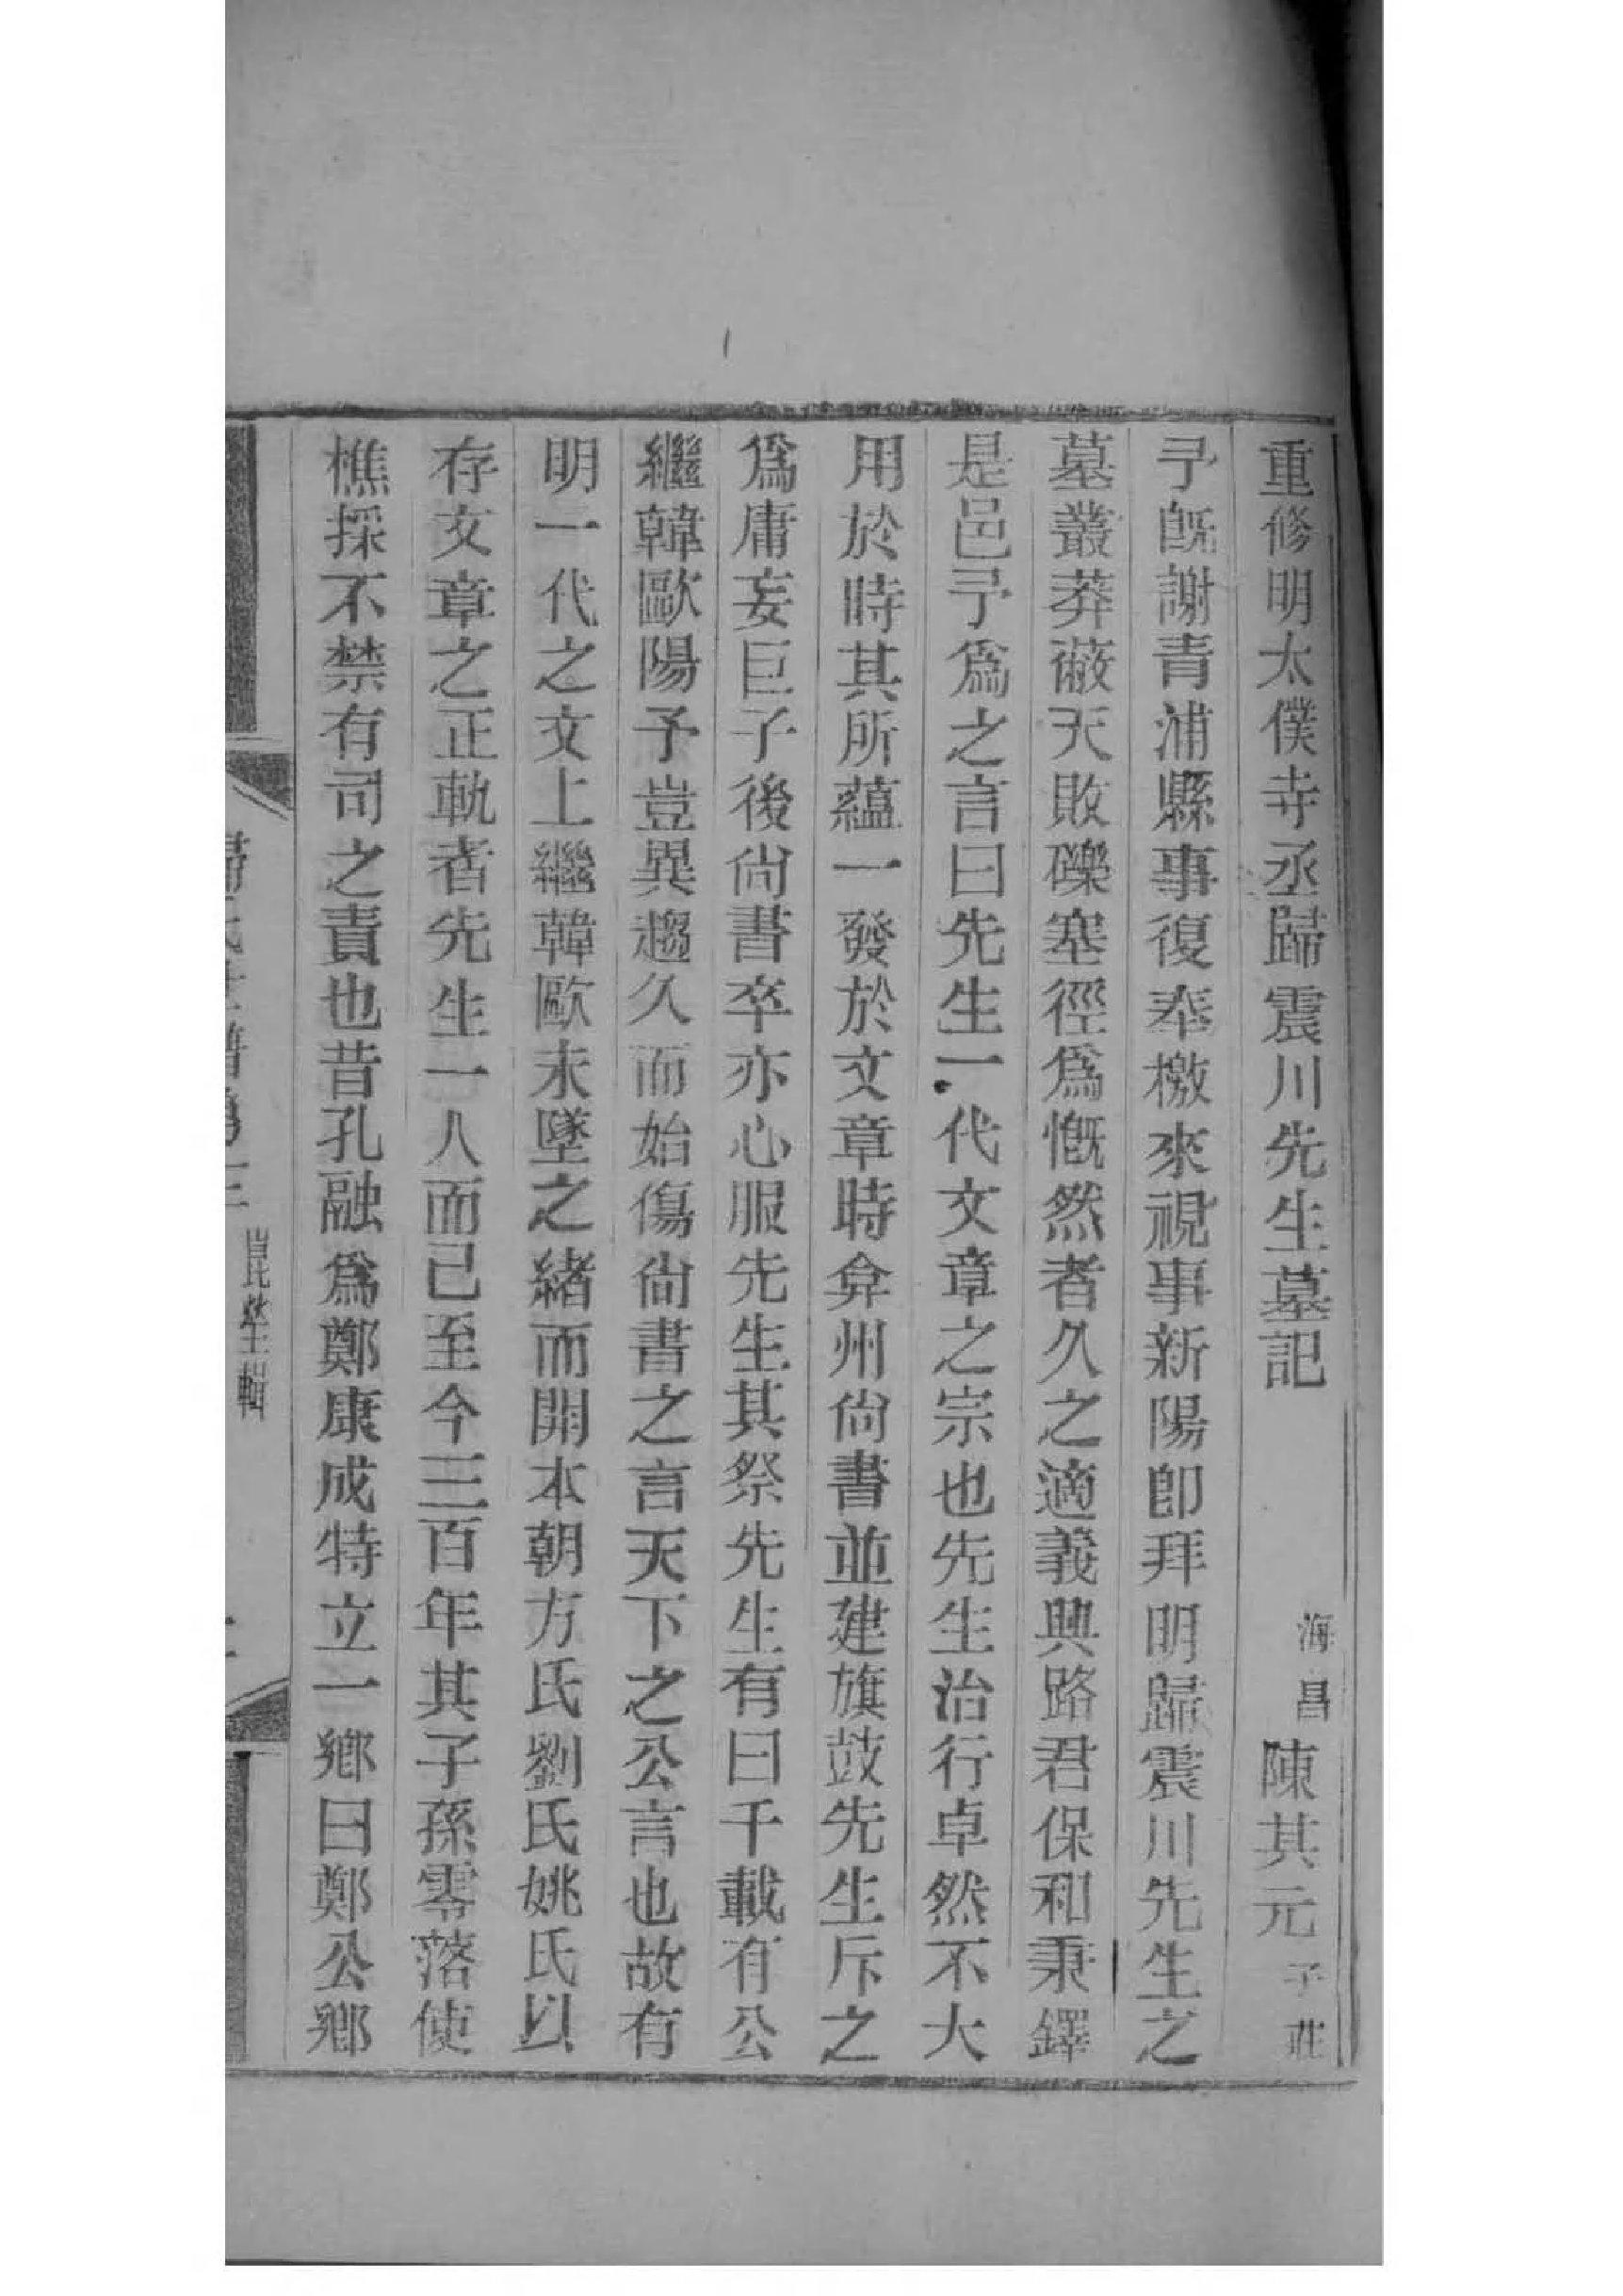 重修明太僕寺丞歸震川先生墓記
海昌陳其元子莊
予既謝青浦縣事復奉檄來視事新陽卽拜明歸震川先生之
墓叢莽蔽天敗礫塞徑爲慨然者久之適義興路君保和秉鐸
是邑予爲之言曰先生一代文章之宗也先生治行卓然不大
用於時其所蘊一發於文章時弇州尙書並建旗鼓先生斥之
爲庸妄巨子後尙書卒亦心服先生其祭先生有曰千載有公
繼韓歐陽予豈異趨久而始傷尙書之言天下之公言也故有
明一代之文上繼韓歐未墜之緒而開本朝方氏劉氏姚氏以
存文章之正軌者先生一人而已至今三百年其子孫零落使
樵採不禁有司之責也昔孔融爲鄭康成特立一鄕曰鄭公鄕